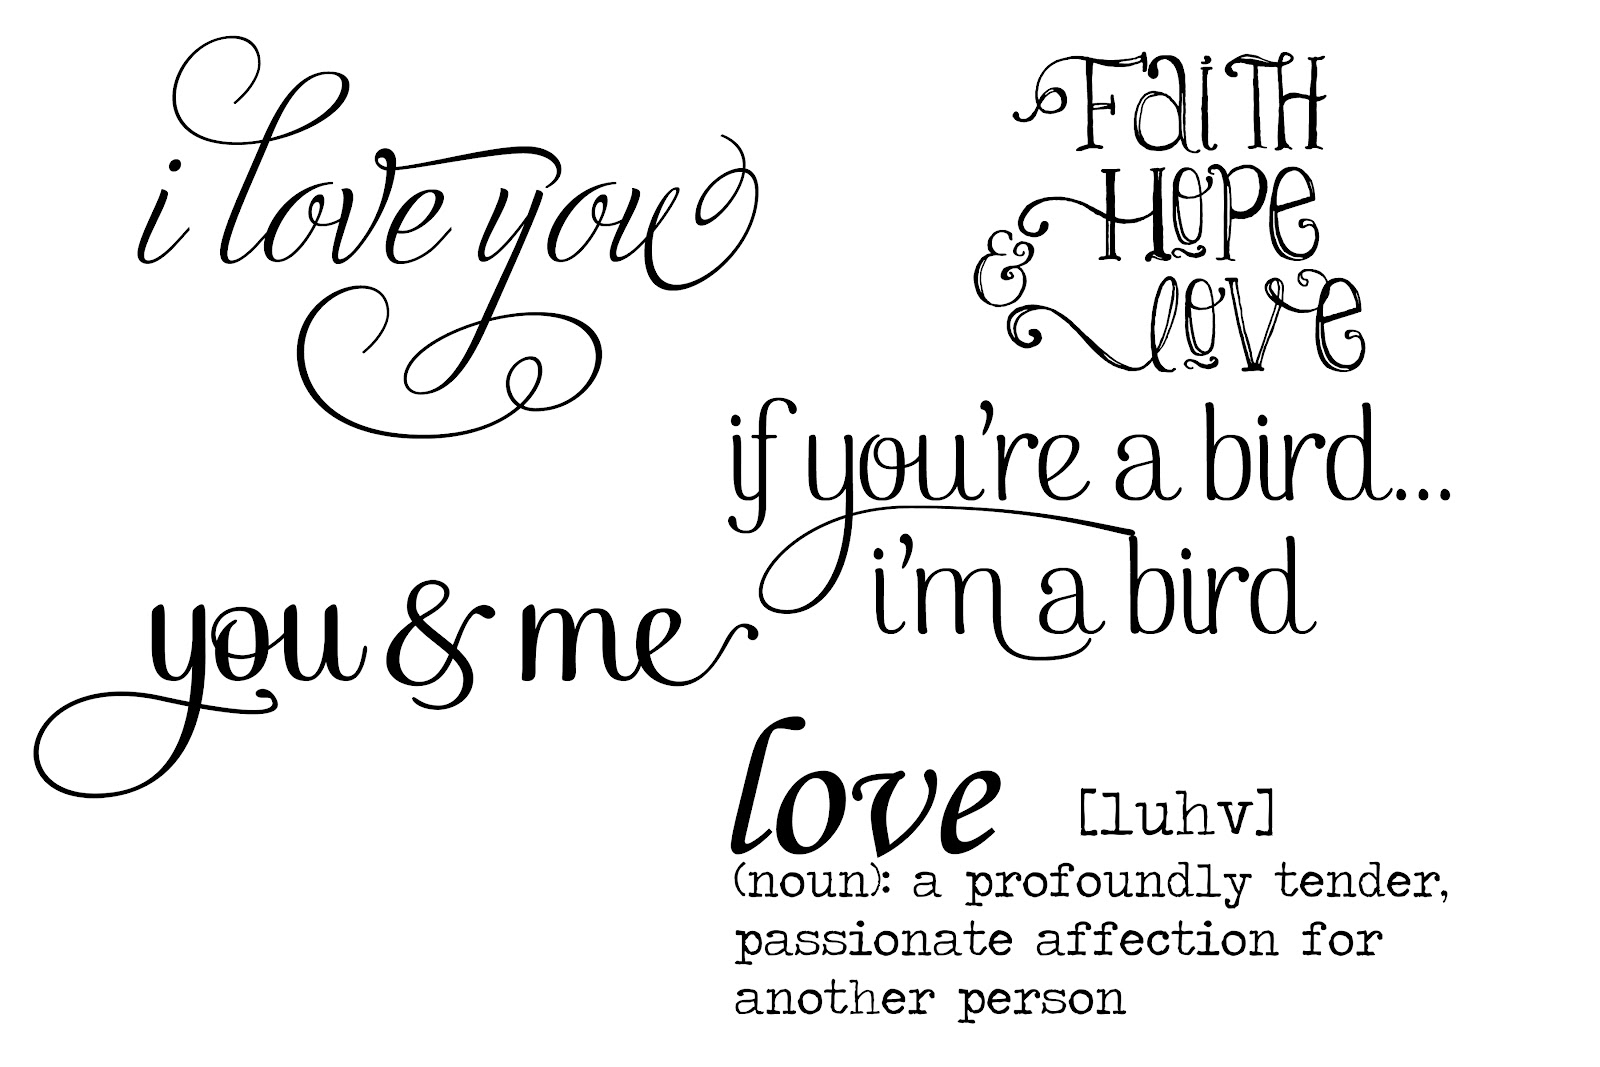 i love you
Faith
Hope
&
love
if you're a bird...
i'm a bird
you & me
love [luhv]
(noun): a profoundly tender,
passionate affection for
another person